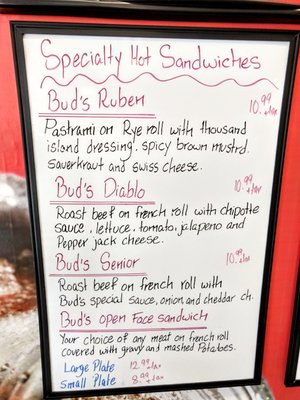 Specialty Hot Sandwiches
Bud's Ruben 10.99 +tax
Pastrami on Rye roll with thousand
island dressing. spicy brown mustrd.
sauerkraut and swiss cheese.
Bud's Diablo 10.99 +tax
Roast beef on french roll with chipotte
sauce, lettuce, tomato, jalapeno and
Pepper jack cheese.
Bud's Senior 10.99 +tax
Roast beef on french roll with
Bud's special sauce, onion and cheddar ch.
Bud's open Face sandwich
Your choice of any meat on french roll
covered with gravy and mashed Potatoes.
Large Plate 12.99 +tax
Small Plate 8.99 +tax